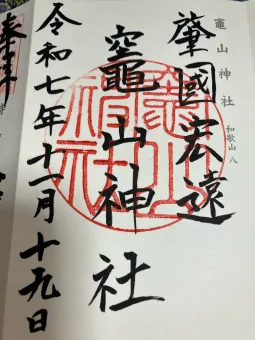 竈山神社
和歌山 八
肇國宏遠
竈山神社
令和七年十一月十九日